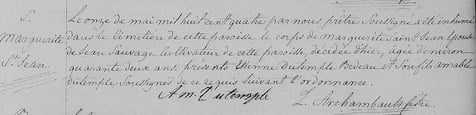 S.
Marguerite
St Jean
Le onze de mai mil huit cent quatre par nous prêtre soussigné a été inhumé
dans le cimetière de cette paroisse le corps de margurite Saint Jean épouse
de Jean Sauvage cultivateur de cette paroisse, décédée d'hier, agée d'environ
quarante deux ans, présents Etienne dutemple Bedeau et Son fils amable
dutemple Soussignés de ce requis suivant l'ordonnance.
Am. Dutemple
L. Archambault ptre.